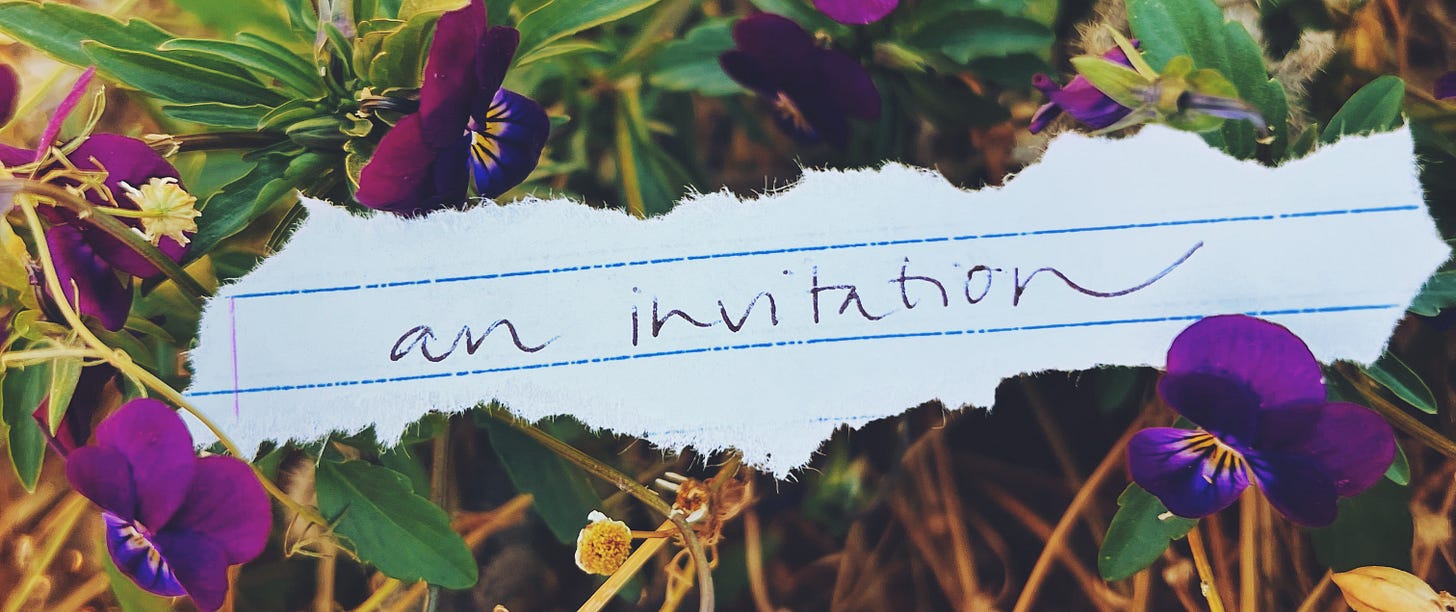 an invitation